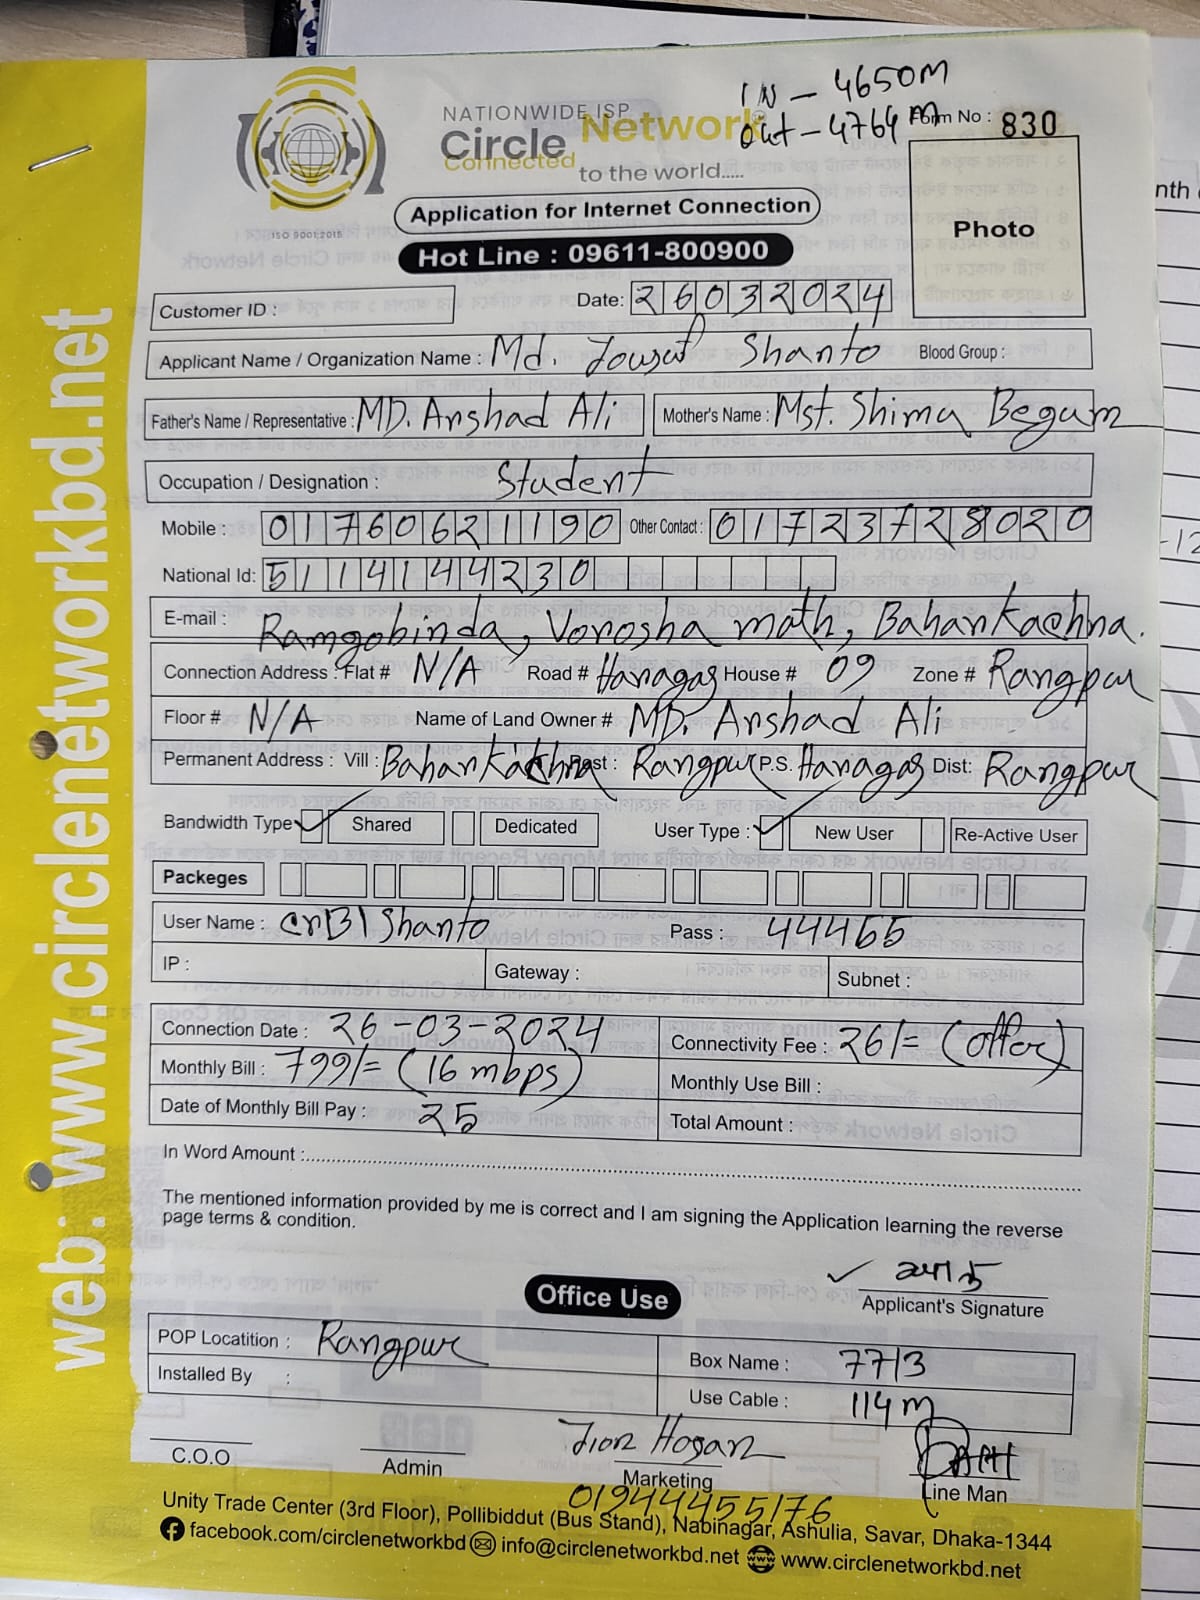 IN - 4650M
out - 4764m
NATIONWIDE ISP
Circle Network
Connected to the world.....
Form No : 830
ISO 9001:2015
Application for Internet Connection
Hot Line : 09611-800900
Photo
Customer ID :
Date: 26032024
Applicant Name / Organization Name : Md. Shanto Blood Group :
Father's Name / Representative : MD. Arshad Ali Mother's Name : Mst. Shima Begum
Occupation / Designation : Student
Mobile : 01760621190 Other Contact : 01723728020
National Id: 5114144230
E-mail : Ramgobinda, Vorosha math, Baharkachna.
Connection Address : Flat # N/A Road # Haragas House # 09 Zone # Rangpur
Floor # N/A Name of Land Owner # MD. Arshad Ali
Permanent Address : Vill : Baharkachna Post : Rangpur P.S. Haragas Dist: Rangpur
Bandwidth Type Shared Dedicated User Type : New User Re-Active User
Packeges
User Name : crB1Shanto Pass : 44465
IP : Gateway : Subnet :
Connection Date : 26-03-2024 Connectivity Fee : 26/= (offer)
Monthly Bill : 799/= (16 mbps) Monthly Use Bill :
Date of Monthly Bill Pay : 25 Total Amount :
In Word Amount :
The mentioned information provided by me is correct and I am signing the Application learning the reverse
page terms & condition.
Applicant's Signature
Office Use
POP Locatition : Rangpur Box Name : 77/3
Installed By : Use Cable : 114m
C.O.O Admin Marketing Line Man
01944455176
Unity Trade Center (3rd Floor), Pollibiddut (Bus Stand), Nabinagar, Ashulia, Savar, Dhaka-1344
facebook.com/circlenetworkbd info@circlenetworkbd.net www.circlenetworkbd.net
web: www.circlenetworkbd.net
nth
-12